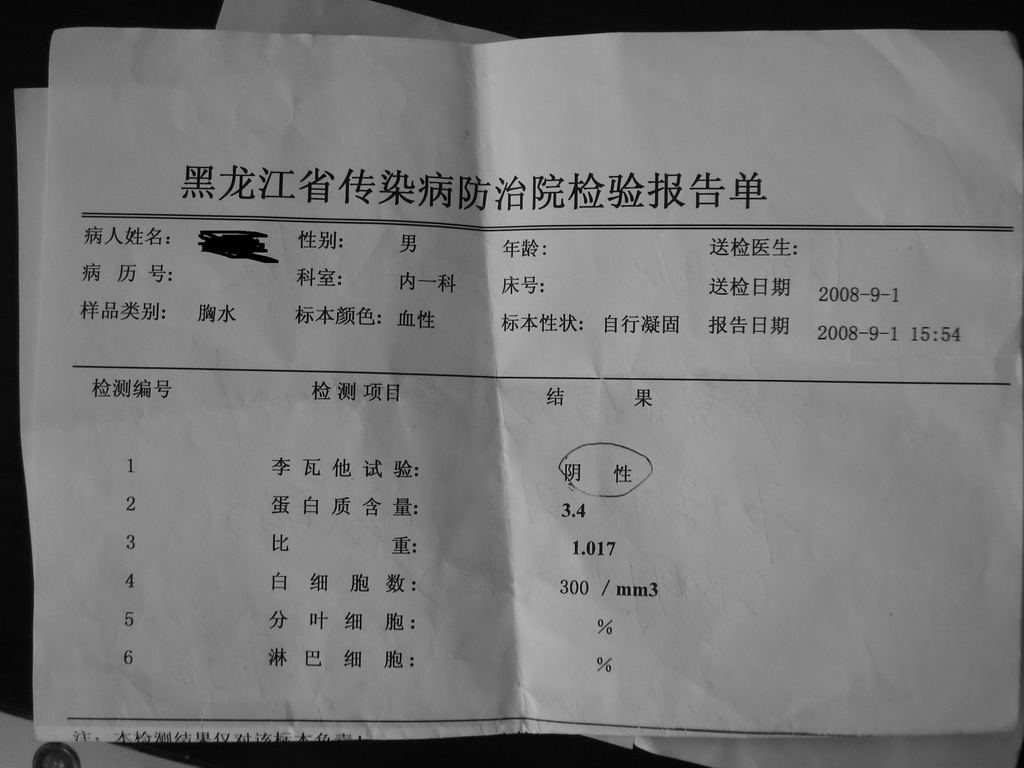 黑龙江省传染病防治院检验报告单
病人姓名: 性别: 男 年龄: 送检医生:
病 历 号: 科室: 内一科 床号: 送检日期 2008-9-1
样品类别: 胸水 标本颜色: 血性 标本性状: 自行凝固 报告日期 2008-9-1 15:54
检测编号 检 测 项目 结 果
1 李 瓦 他 试 验: 阴 性
2 蛋 白 质 含 量: 3.4
3 比 重: 1.017
4 白 细 胞 数: 300 /mm3
5 分 叶 细 胞: %
6 淋 巴 细 胞: %
注: 本检测结果仅对该标本负责!